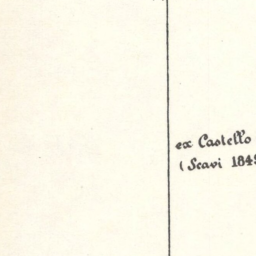 ex Castello
(Scavi 1849